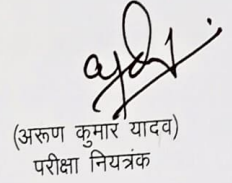 (अरूण कुमार यादव)
परीक्षा नियत्रंक